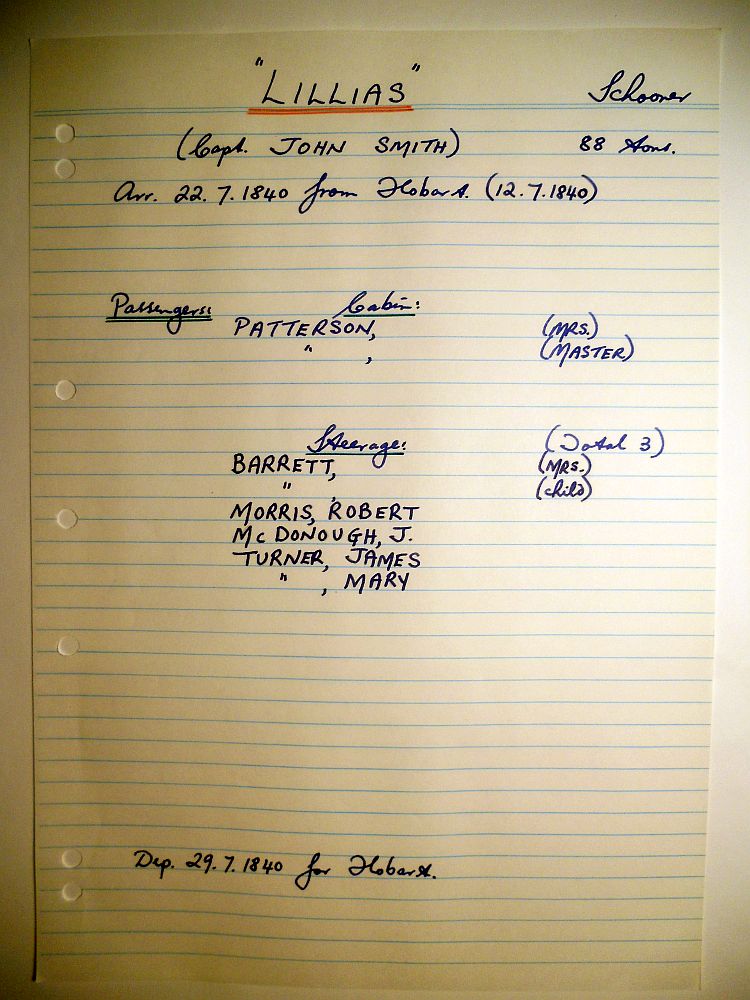 "LILLIAS" Schooner
(Capt. JOHN SMITH) 88 tons.
Arr. 22.7.1840 from Hobart. (12.7.1840)
Passengers: Cabin:
PATTERSON, (MRS.)
" , (MASTER)
Steerage: (Total 3)
BARRETT, (MRS.)
" , (child)
MORRIS, ROBERT
McDONOUGH, J.
TURNER, JAMES
" , MARY
Dep. 29.7.1840 for Hobart.